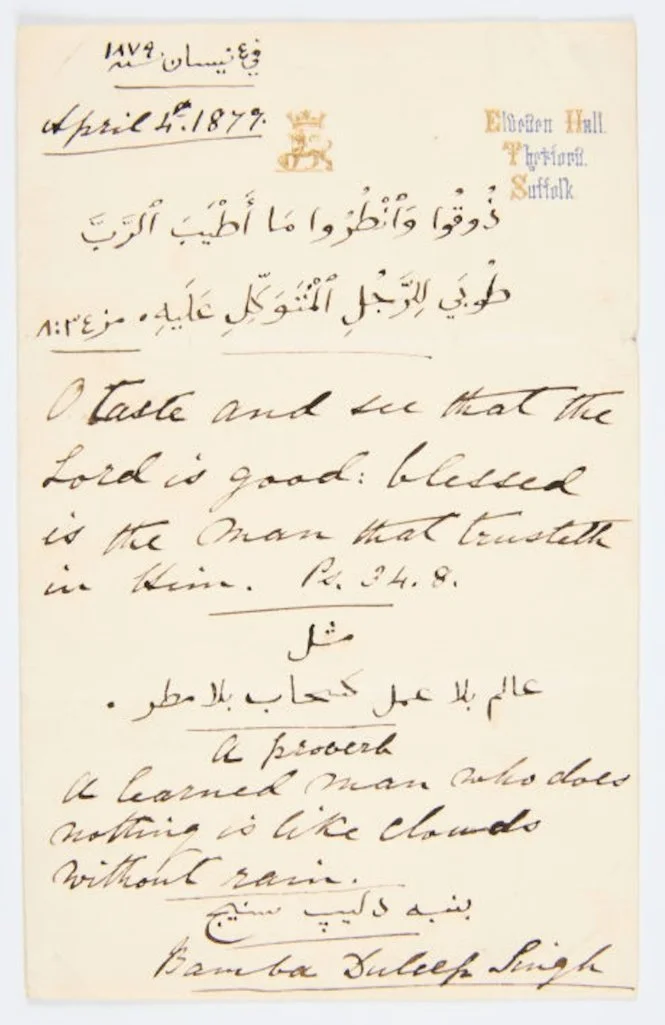 في ٤ نيسان سنة ١٨٧٩
April 4th. 1879.
Elveden Hall.
Thetford.
Suffolk.
ذُوقُوا وَٱنْظُرُوا مَا أَطْيَبَ ٱلرَّبَّ
طُوبَي لِلرَّجُلِ ٱلْمُتَوَكِّلِ عَلَيهِ . مز ٣٤ : ٨
O taste and see that the
Lord is good: blessed
is the man that trusteth
in Him. Ps. 34. 8.
مثل
عالم بلا عمل كسحاب بلا مطر .
A proverb
A learned man who does
nothing is like clouds
without rain.
بنبه دليپ سنيج
Bamba Duleep Singh